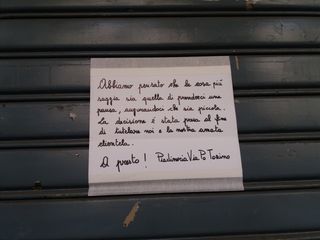 Abbiamo pensato che la cosa più
saggia sia quella di prenderci una
pausa, augurandoci che sia piccola.
La decisione è stata presa al fine
di tutelare noi e la nostra amata
clientela.
A presto! Piadineria Via Po Torino